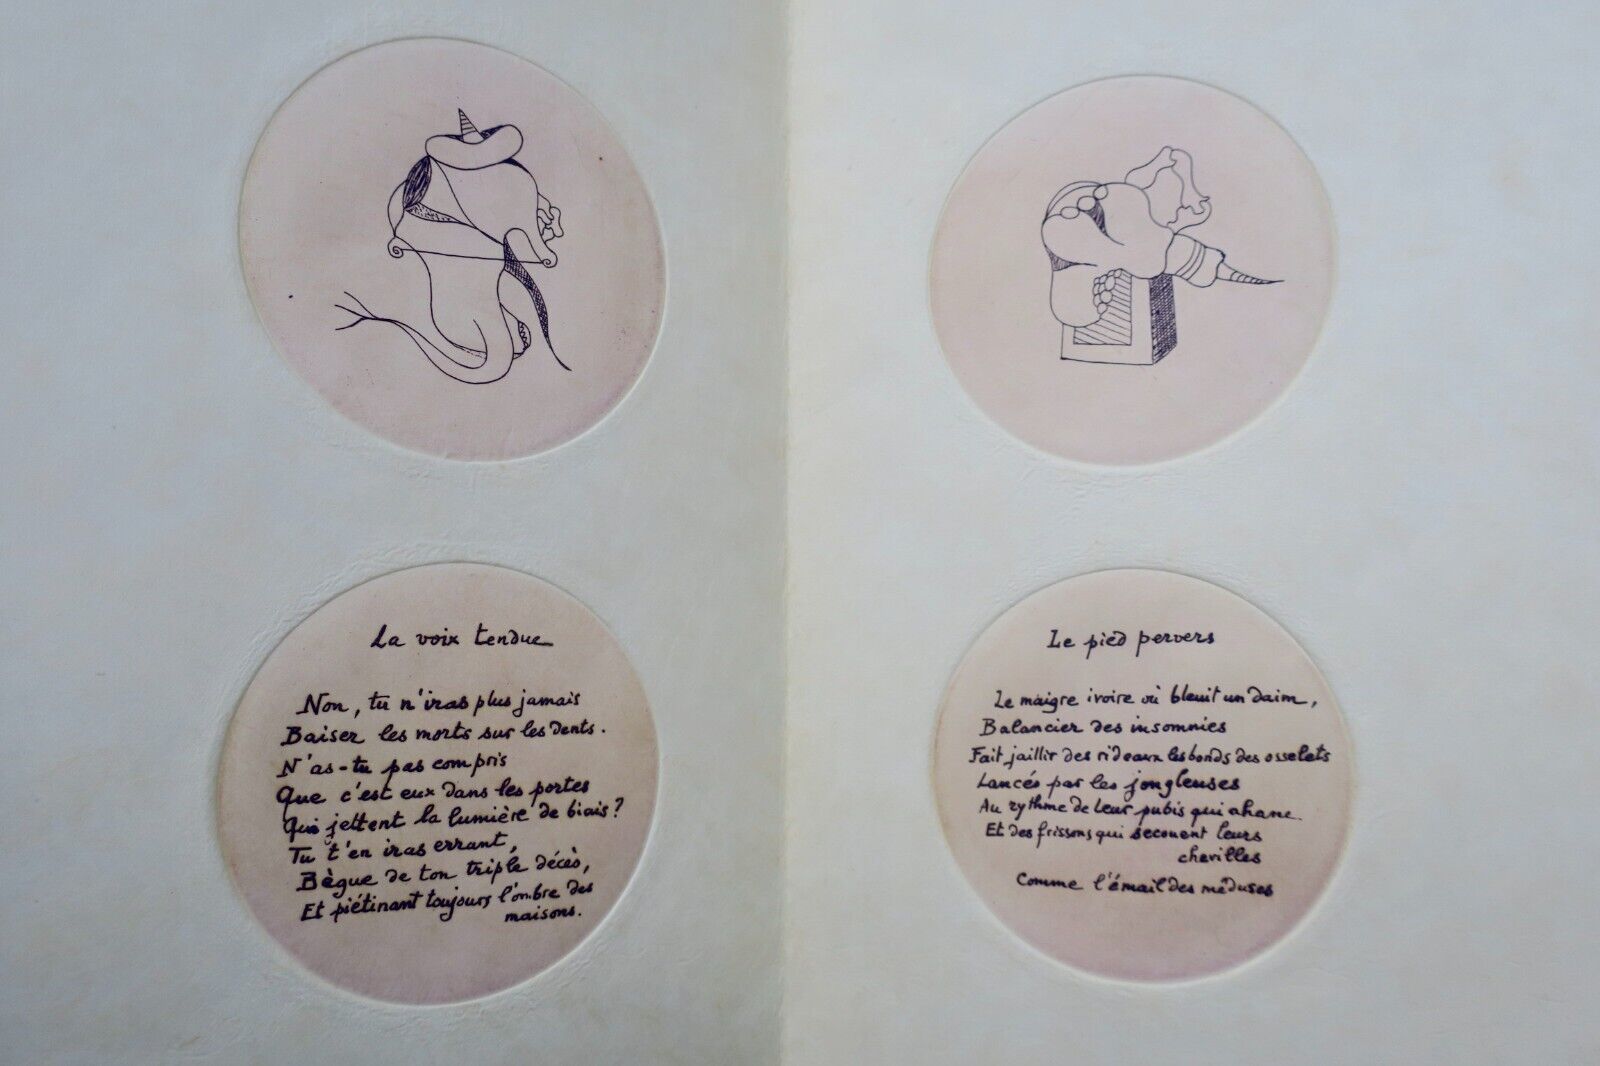 La voix tendue
Non, tu n'iras plus jamais
Baiser les morts sur les dents.
N'as-tu pas compris
Que c'est eux dans les portes
Qui jettent la lumière de biais?
Tu t'en iras errant,
Bègue de ton triple décès,
Et piétinant toujours l'ombre des
maisons.
Le pied pervers
Le maigre ivoire où bleuit un daim,
Balancier des insomnies
Fait jaillir des rideaux les bonds des osselets
Lancés par les jongleuses
Au rythme de leur pubis qui ahane.
Et des frissons qui secouent leurs
chevilles
Comme l'émail des méduses